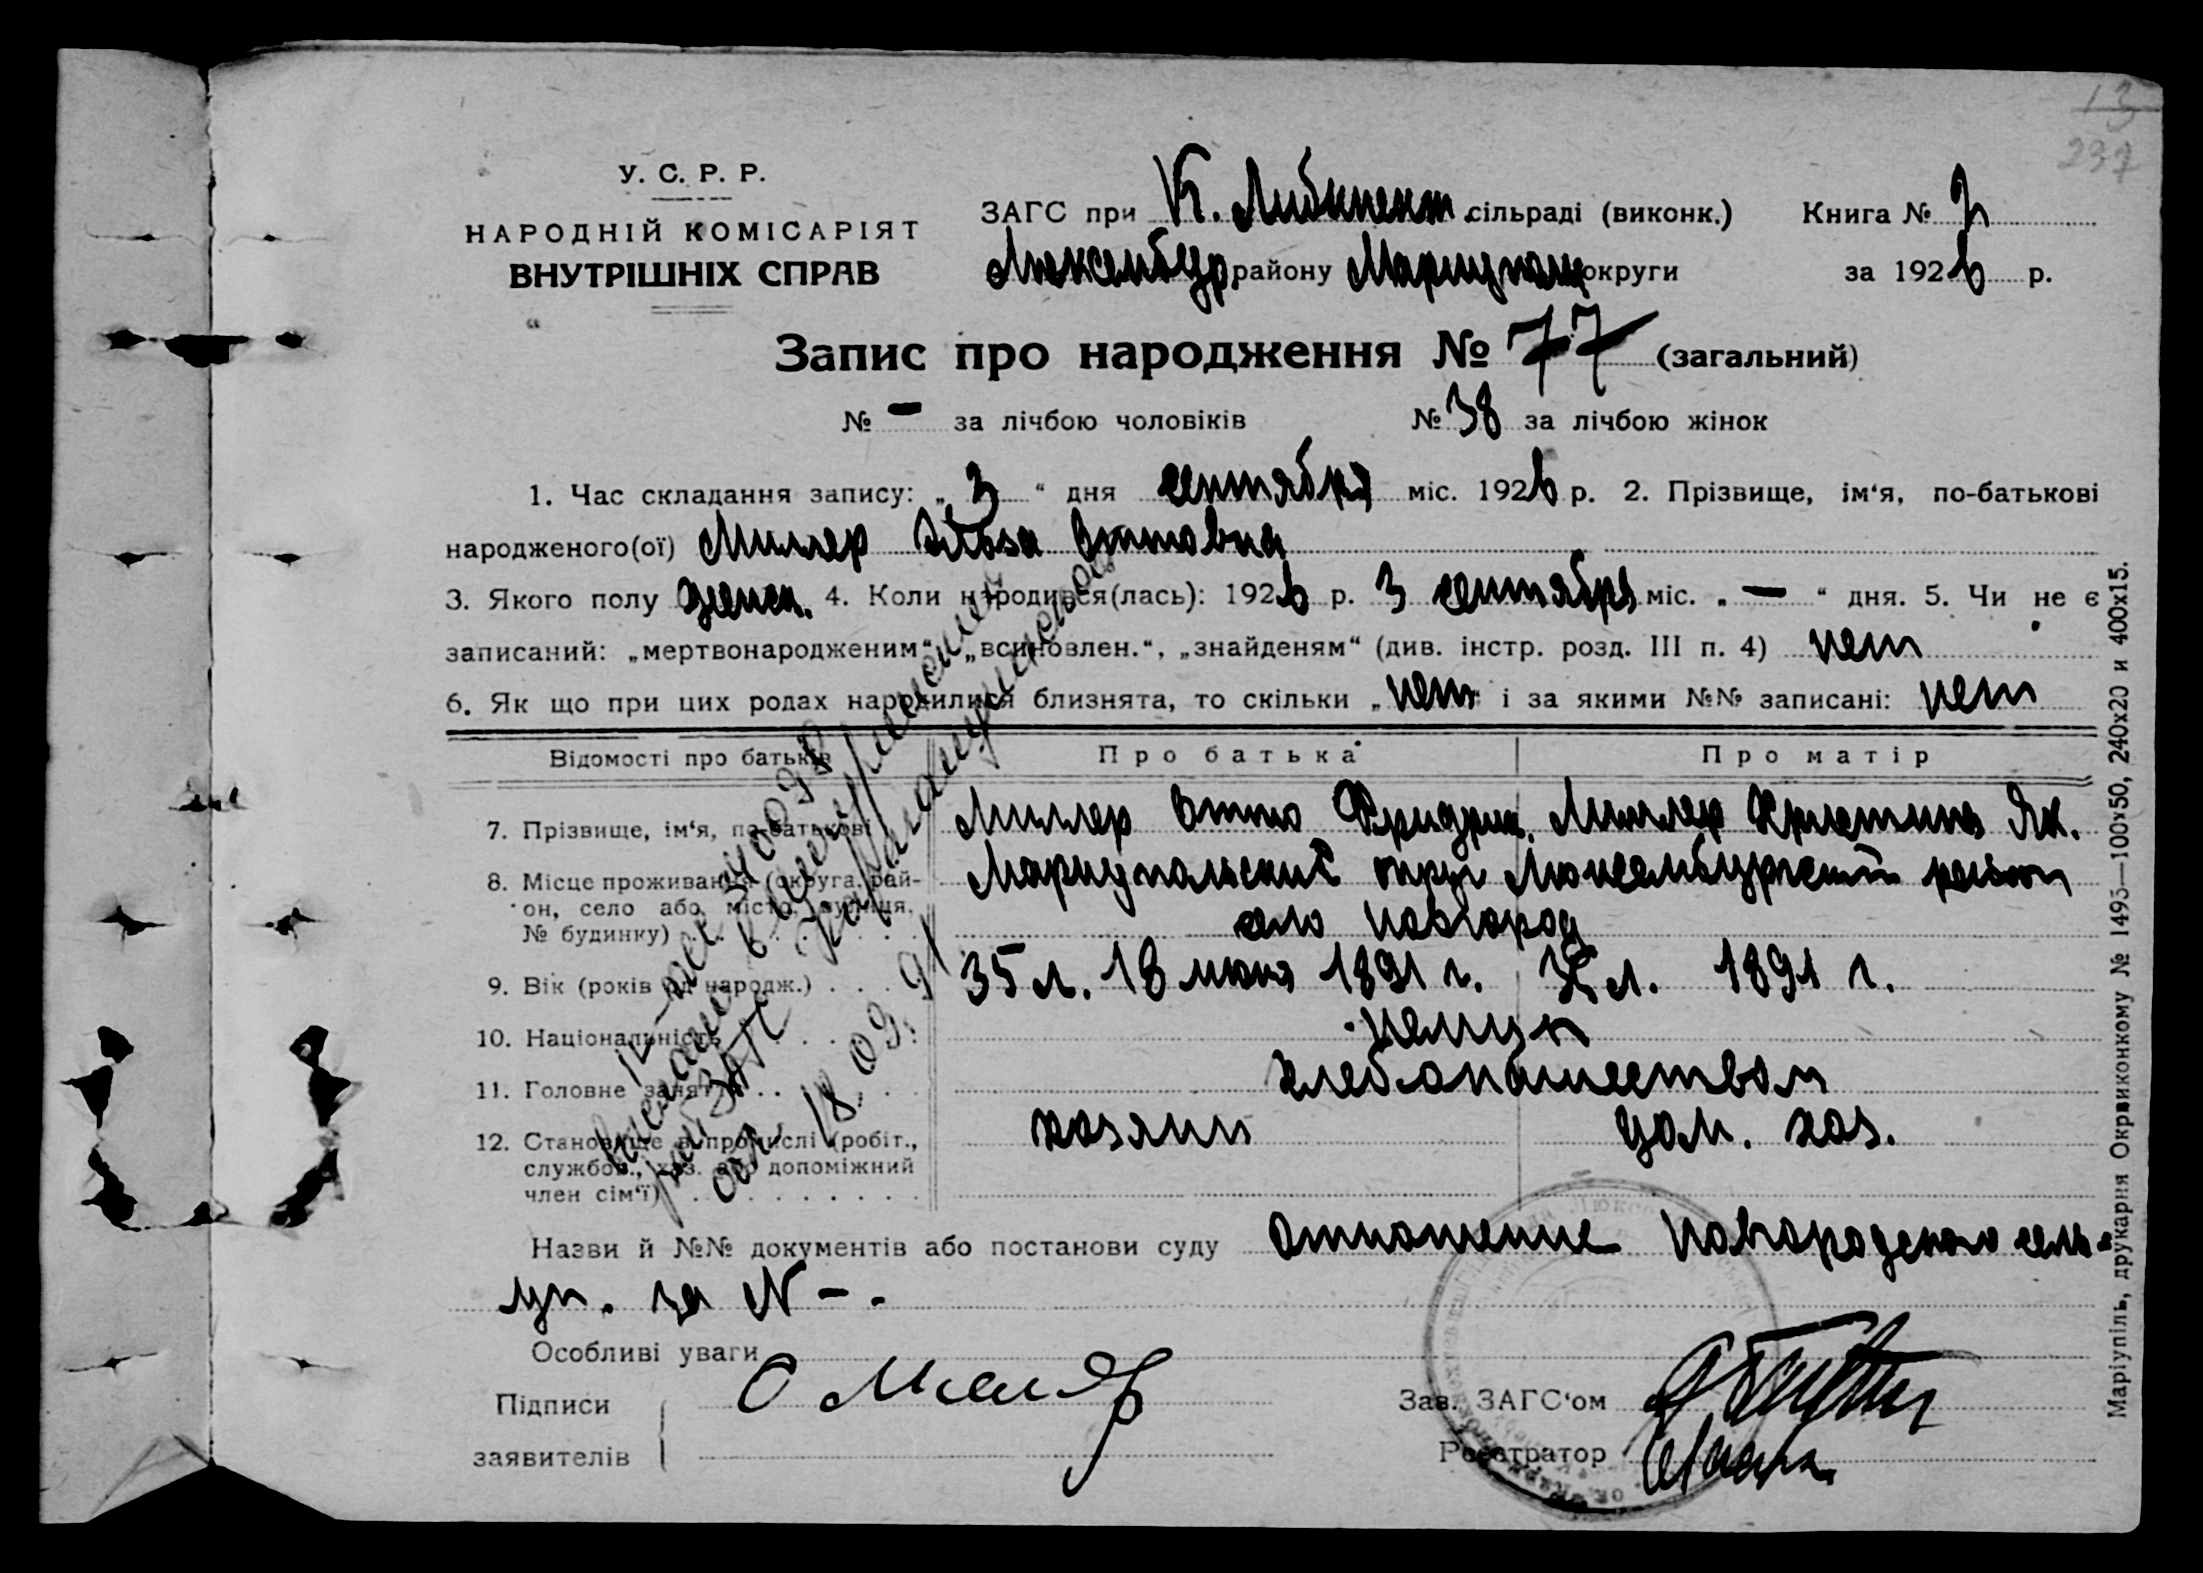 13
237
У. С. Р. Р.
НАРОДНІЙ КОМІСАРІЯТ
ВНУТРІШНІХ СПРАВ
ЗАГС при К. сільраді (виконк.) Книга № 2
Люксембур. району Мариупольс округи за 1926 р.
Запис про народження № 77 (загальний)
№ — за лічбою чоловіків № 38 за лічбою жінок
1. Час складання запису: „ 3 “ дня сентября міс. 1926 р. 2. Прізвище, ім‘я, по-батькові
народженого(ої) Миллер Оттовна
3. Якого полу женск. 4. Коли народився(лась): 1926 р. 3 сентября міс. „ — “ дня. 5. Чи не є
записаний: „мертвонародженим“, „всиновлен.“, „знайденям“ (див. інстр. розд. III п. 4) нет
6. Як що при цих родах народилися близнята, то скільки „ нет “ і за якими №№ записані: нет
Відомості про батьків Про батька Про матір
7. Прізвище, ім‘я, по-батькові Миллер Отто Фридрих. Миллер Христина Як.
8. Місце проживання (округа, рай- Мариупольский округ Люксембургский район
он, село або місто, вулиця, село Новгород
№ будинку)
9. Вік (років од народж.) 35 л. 18 июня 1891 г. л. 1891 г.
10. Національність немцы
11. Головне заняття хлебопашеством
12. Становище в промислі (робіт., хозяин дом. хоз.
службов., хаз. або допоміжний
член сім‘ї)
Назви й №№ документів або постанови суду Отношение Новгородского сель-
уп. за N — .
Особливі уваги
Підписи О Миллер Зав. ЗАГС‘ом
заявителів Реєстратор
18.09.91
Маріупіль, друкарня Окрвиконкому № 1495—100×50, 240×20 и 400×15.